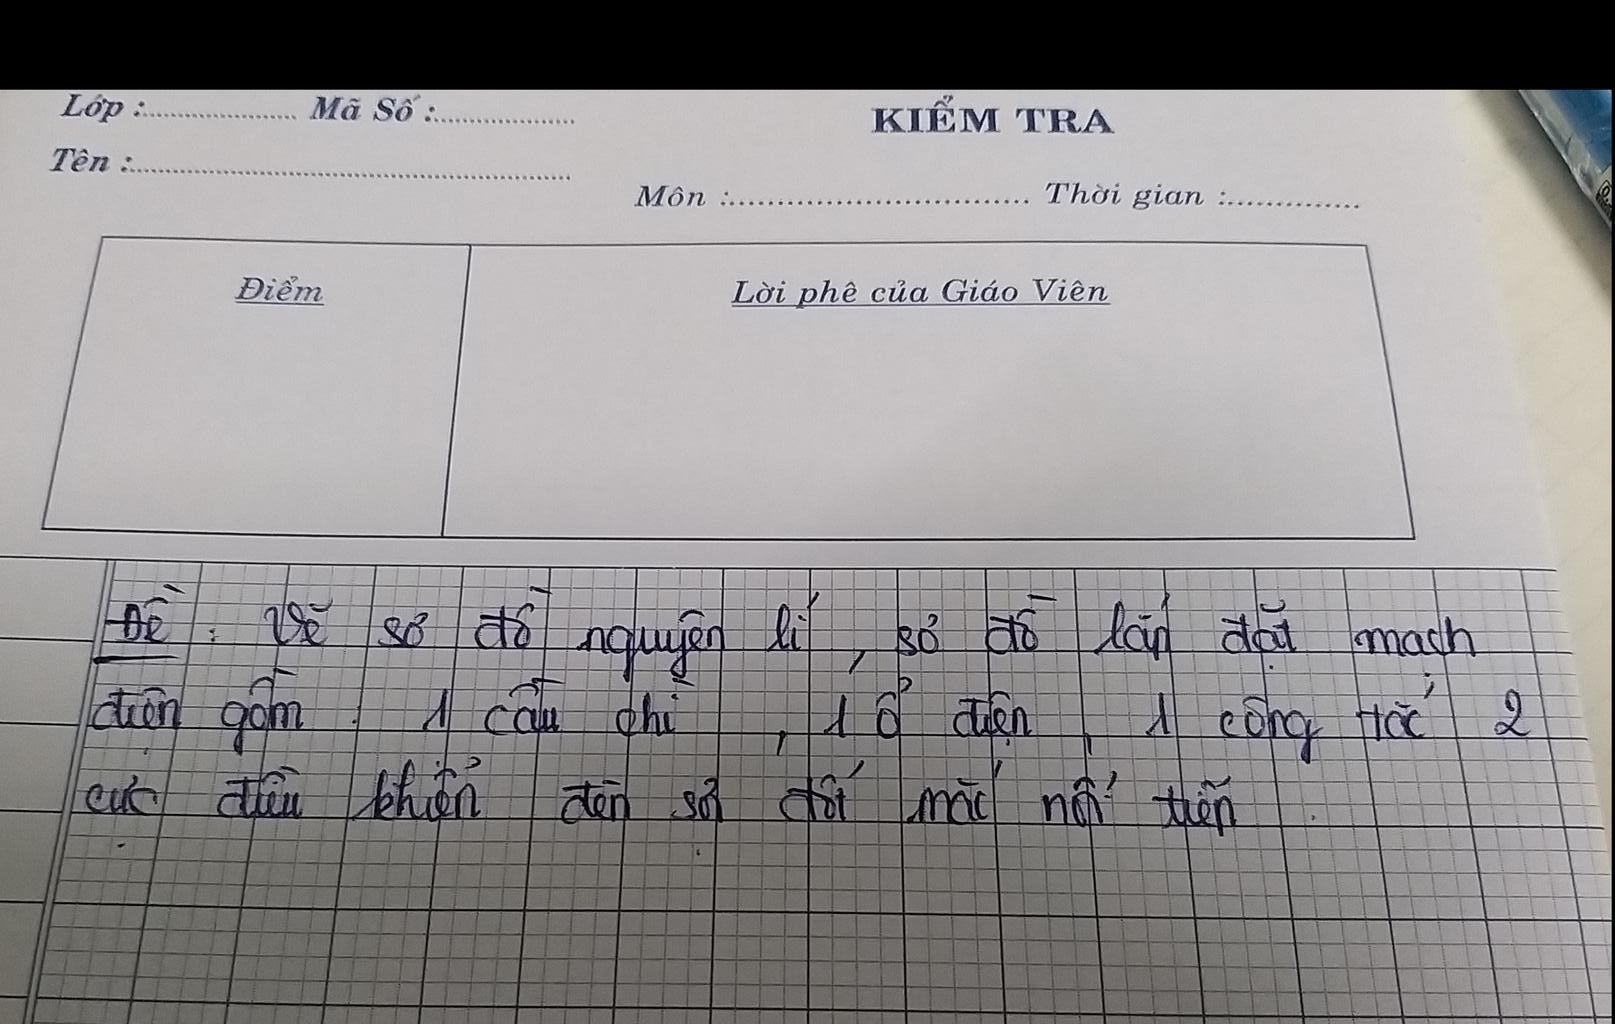 Lớp :.................... Mã Số :..................
KIỂM TRA
Tên :..........................................................
Môn :................................ Thời gian :..............
Điểm
Lời phê của Giáo Viên
Đề : Vẽ sơ đồ nguyên lí, sơ đồ lắp đặt mạch
điện gồm : 1 cầu chì, 1 ổ điện, 1 công tắc 2
cực điều khiển đèn sợi đốt mắc nối tiếp.